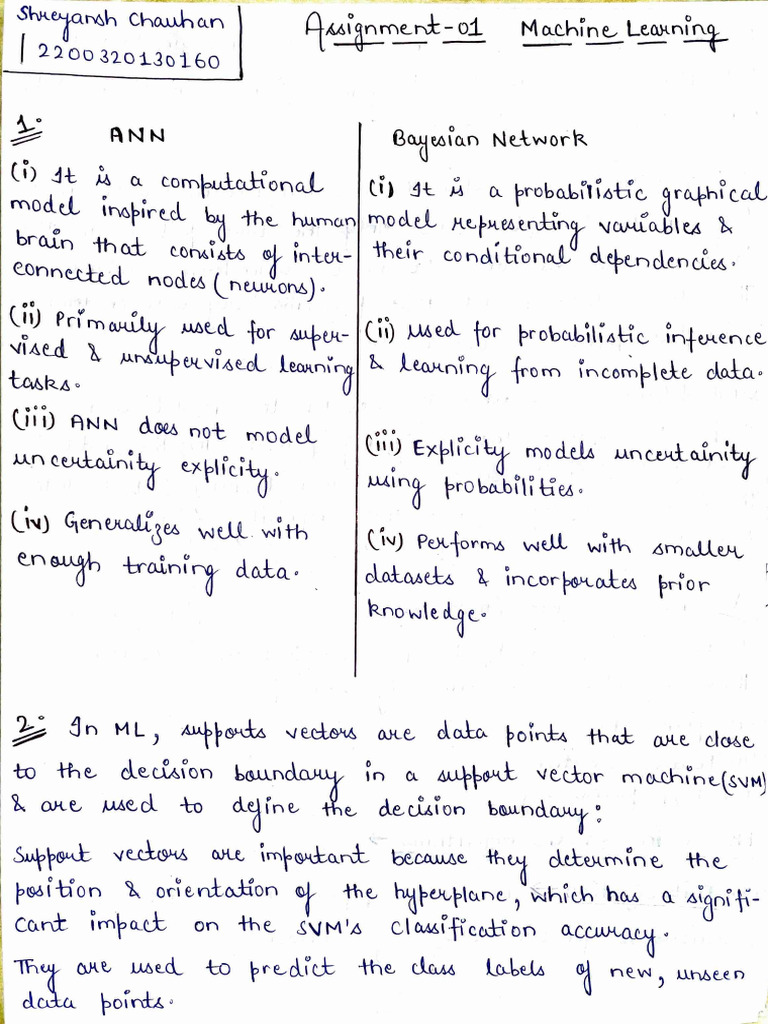 Shreyansh Chauhan
2200320130160
Assignment-01 Machine Learning
1.
ANN
(i) It is a computational
model inspired by the human
brain that consists of inter-
connected nodes (neurons).
(ii) Primarily used for super-
vised & unsupervised learning
tasks.
(iii) ANN does not model
uncertainity explicity.
(iv) Generalizes well with
enough training data.
Bayesian Network
(i) It is a probabilistic graphical
model representing variables &
their conditional dependencies.
(ii) Used for probabilistic inference
& learning from incomplete data.
(iii) Explicity models uncertainity
using probabilities.
(iv) Performs well with smaller
datasets & incorporates prior
knowledge.
2. In ML, supports vectors are data points that are close
to the decision boundary in a support vector machine (SVM)
& are used to define the decision boundary:
Support vectors are important because they determine the
position & orientation of the hyperplane, which has a signifi-
cant impact on the SVM's classification accuracy.
They are used to predict the class labels of new, unseen
data points.